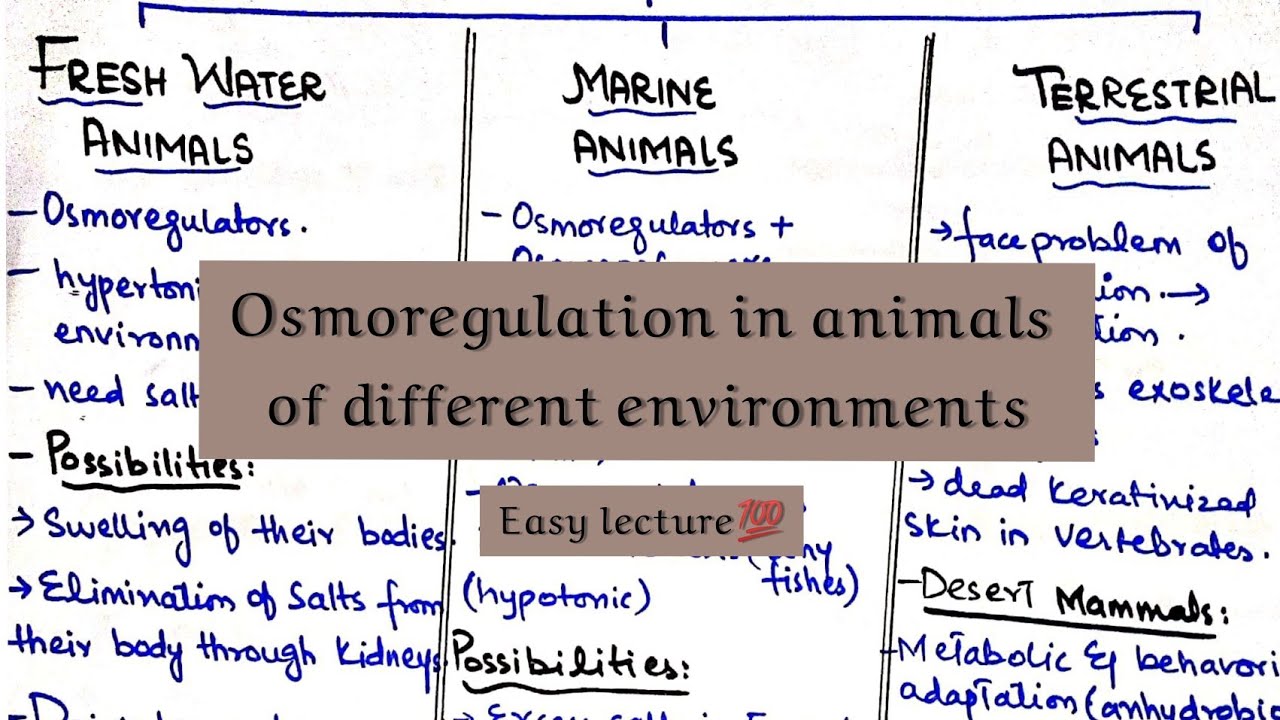 FRESH WATER
ANIMALS
- Osmoregulators.
- hypertoni
environn
- need salt
- Possibilities:
→ Swelling of their bodies.
→ Elimination of Salts from
their body through kidneys
MARINE
ANIMALS
- Osmoregulators +
fishes)
(hypotonic)
Possibilities:
TERRESTRIAL
ANIMALS
→ face problem of
ion. →
tion.
exoskele
→ dead keratinized
skin in vertebrates.
- Desert Mammals:
- Metabolic & behavori
adaptation (anhydrobio
Osmoregulation in animals
of different environments
Easy lecture💯